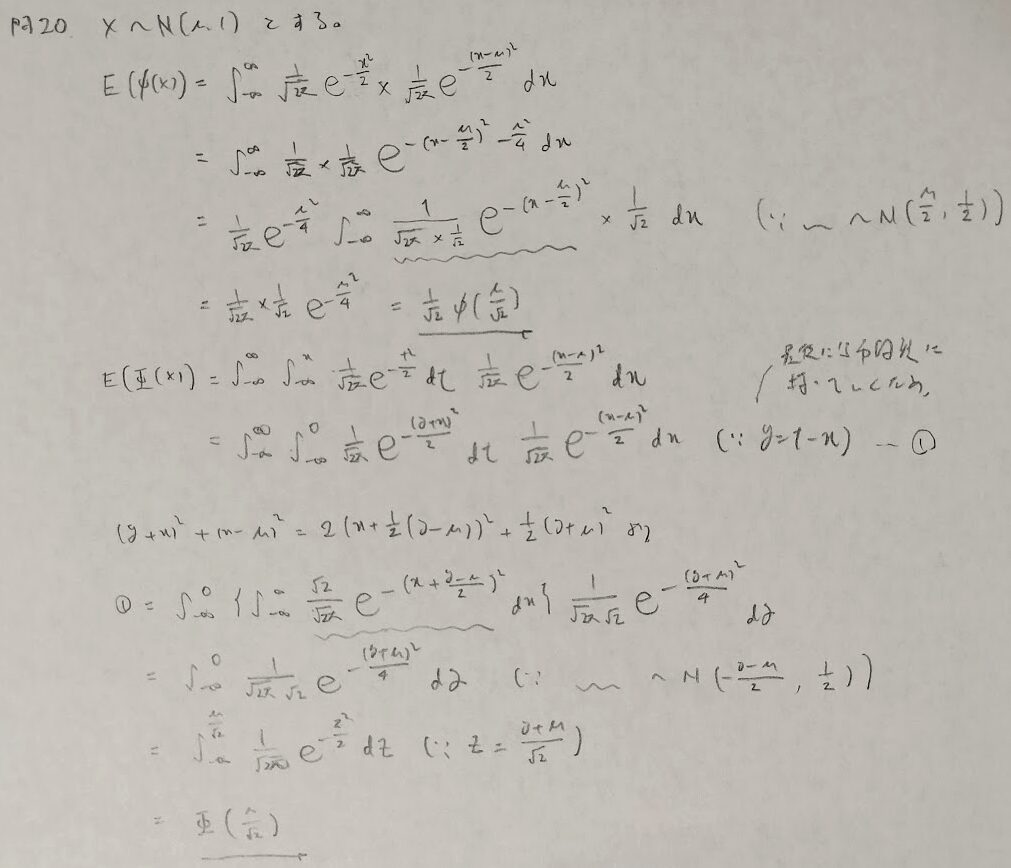 P720 X ~ N(μ,1) とする。
E(φ(x)) = ∫_{-∞}^{∞} 1/√2π e^{-x²/2} × 1/√2π e^{-(x-μ)²/2} dx
= ∫_{-∞}^{∞} 1/√2π × 1/√2π e^{-(x-μ/2)² - μ²/4} dx
= 1/√2π e^{-μ²/4} ∫_{-∞}^{∞} 1/(√2π × 1/√2) e^{-(x-μ/2)²} × 1/√2 dx (∵ 〰 ~ N(μ/2, 1/2))
= 1/√2π × 1/√2 e^{-μ²/4} = 1/√2 φ(μ/√2)
E(Φ(x)) = ∫_{-∞}^{∞} ∫_{-∞}^{x} 1/√2π e^{-t²/2} dt 1/√2π e^{-(x-μ)²/2} dx
最後に分布関数に
持っていくため。
= ∫_{-∞}^{∞} ∫_{-∞}^{0} 1/√2π e^{-(y+x)²/2} dt 1/√2π e^{-(x-μ)²/2} dx (∵ y=t-x) … ①
(y+x)² + (x-μ)² = 2(x+1/2(y-μ))² + 1/2(y+μ)² より
① = ∫_{-∞}^{0} {∫_{-∞}^{∞} √2/√2π e^{-(x+(y-μ)/2)²} dx} 1/(√2π √2) e^{-(y+μ)²/4} dy
= ∫_{-∞}^{0} 1/(√2π √2) e^{-(y+μ)²/4} dy (∵ 〰 ~ N(-(y-μ)/2, 1/2))
= ∫_{-∞}^{μ/√2} 1/√2π e^{-z²/2} dz (∵ z = (y+μ)/√2)
= Φ(μ/√2)